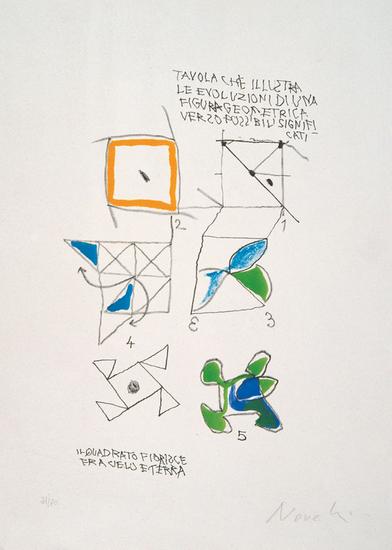 TAVOLA CHE ILLUSTRA
LE EVOLUZIONI DI UNA
FIGURA GEOMETRICA
VERSO POSSIBILI SIGNIFI
CATI
2
1
3
3
4
5
IL QUADRATO FIORISCE
FRA CIELO E TERRA